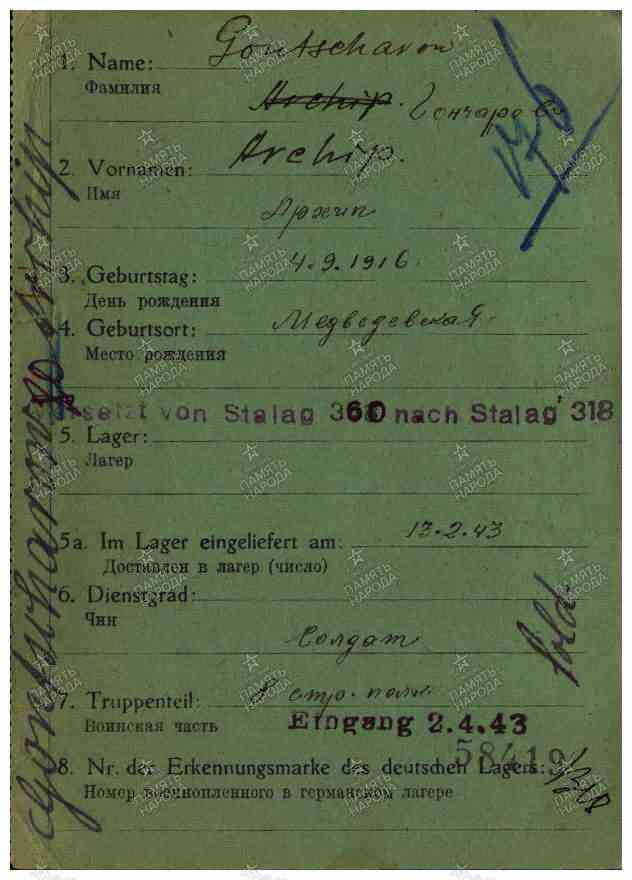 1. Name: Gontscharow
Фамилия
Archip. Гончаров
2. Vornamen: Archip.
Имя
Архип
3. Geburtstag: 4.9.1916
День рождения
4. Geburtsort: Медведевская
Место рождения
setzt von Stalag 360 nach Stalag 318
5. Lager:
Лагер
5a. Im Lager eingeliefert am: 13.2.43
Доставлен в лагер (число)
6. Dienstgrad:
Чин
Солдат
Sold.
7. Truppenteil: 8 стр. полк
Воинская часть
Eingang 2.4.43
58419
8. Nr. der Erkennungsmarke des deutschen Lagers:
Номер военнопленного в германском лагере
Gontscharow Archip
ПАМЯТЬ
НАРОДА